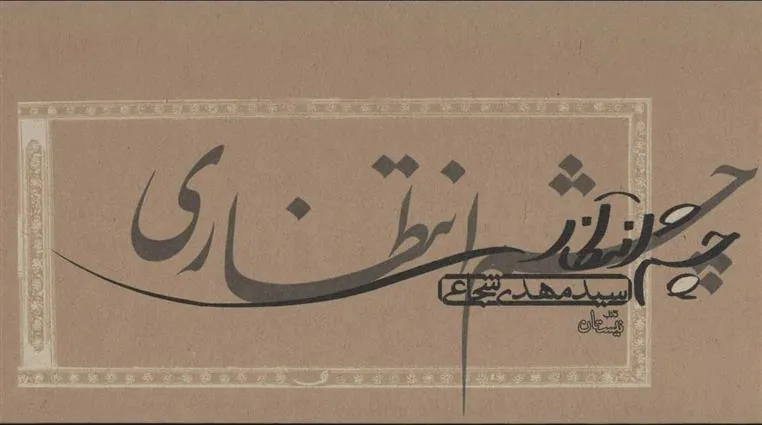 چشم انتظاری
چشم انتظاری
سید مهدی شجاعی
کتاب نیستان